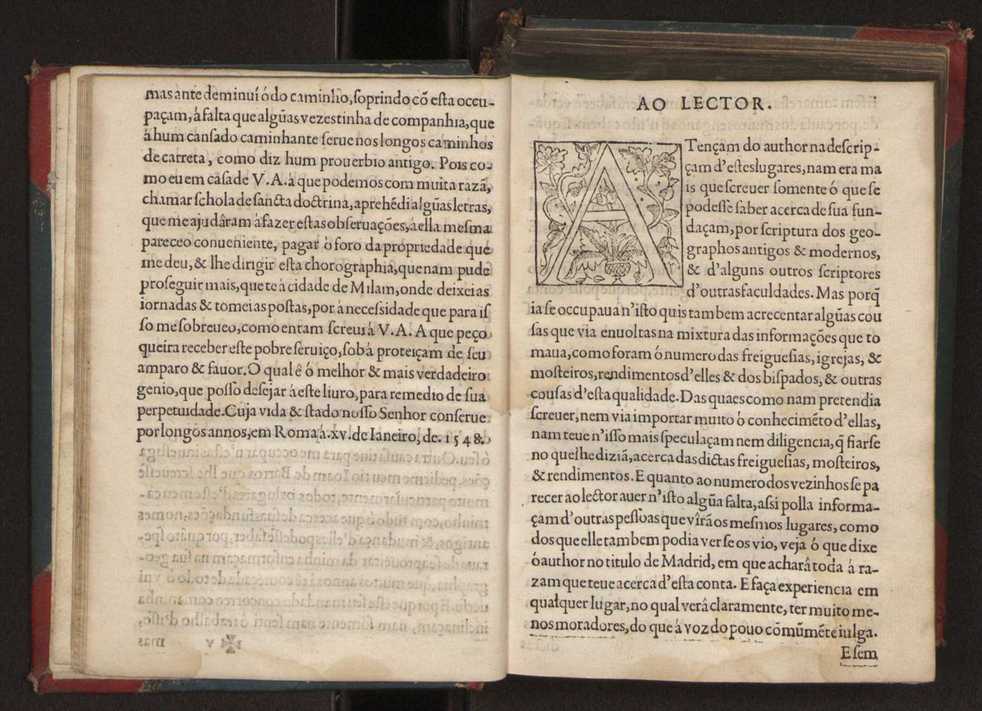 mas ante deminuí ó do caminho, soprindo cõ esta occu-
paçam, à falta que algũas vezes tinha de companhia, que
â hum cansado caminhante serue nos longos caminhos
de carreta, como diz hum prouerbio antigo. Pois co-
mo eu em casa de V.A. a que podemos com muita razã,
chamar schola de sancta doctrina, aprehédi algũas letras,
que me ajudâram à fazer estas obseruações, á ella mesma
pareceo conueniente, pagar ó foro da propriedade que
me deu, & lhe dirigir esta chorographia, que nam pude
proseguir mais, que te à cidade de Milam, onde deixei as
iornadas & tomei as postas, por á necessidade que para is
so me sobreueo, como entam screui á V.A. A que peço
queira receber este pobre seruiço, sob á proteiçam de seu
amparo & fauor. O qual ê ó melhor & mais verdadeiro
genio, que posso desejar á este liuro, para remedio de sua
perpetuidade. Cuja vida & stado nosso Senhor conserue
por longos annos, em Roma à .xv. de Ianeiro, de. 1548.
AO LECTOR.
ATençam do author na descrip-
çam d'estes lugares, nam era ma
is que screuer somente ó que se
podesse saber acerca de sua fun-
daçam, por scriptura dos geo-
graphos antigos & modernos,
& d'alguns outros scriptores
d'outras faculdades. Mas porq̃
ia se occupaua n'isto quis tambem acrecentar algũas cou
sas que via enuoltas na mixtura das informações que to
maua, como foram ó numero das freiguesias, igrejas, &
mosteiros, rendimentos d'elles & dos bispados, & outras
cousas d'esta qualidade. Das quaes como nam pretendia
screuer, nem via importar muito ó conhecimẽto d'ellas,
nam teue n'isso mais speculaçam nem diligencia, q̃ fiarse
no que lhe diziã, acerca das dictas freiguesias, mosteiros,
& rendimentos. E quanto ao numero dos vezinhos se pa
recer ao lector auer n'isto algũa falta, assi polla informa-
çam d'outras pessoas que virâ os mesmos lugares, como
dos que elle tambem podia ver se os vio, veja ó que dixe
ó author no titulo de Madrid, em que acharâ toda á ra-
zam que teue acerca d'esta conta. E faça experiencia em
qualquer lugar, no qual verâ claramente, ter muito me-
nos moradores, do que á voz do pouo cõmũmẽte iulga.
E sem